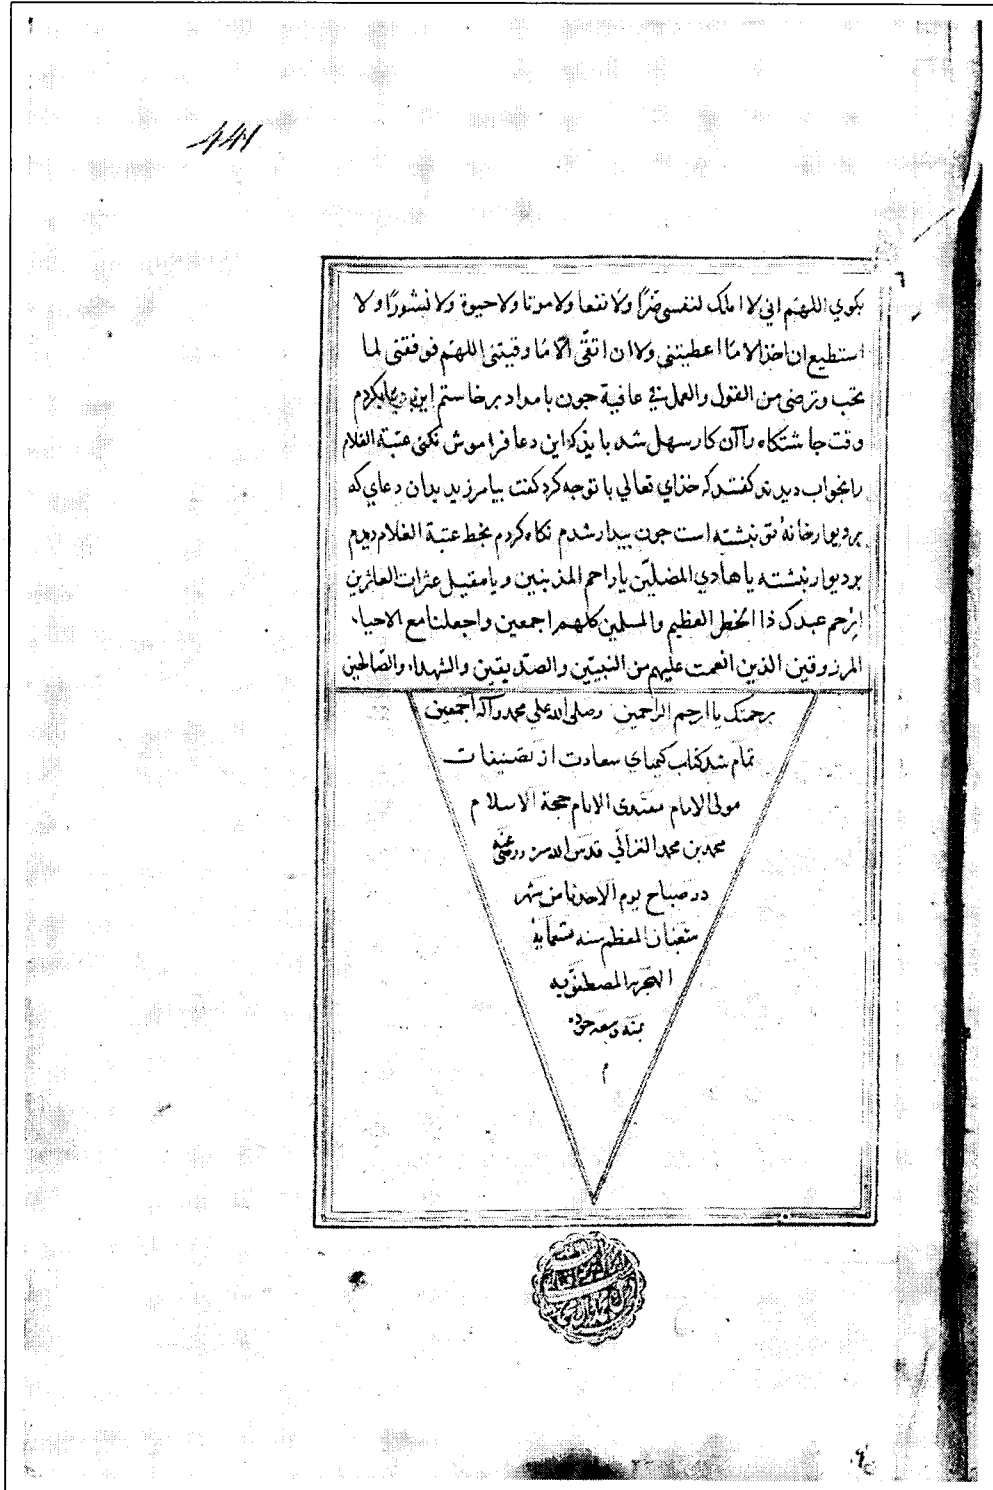 بكوي اللهم اني لا املك لنفسي ضرًا ولا نفعا ولا موتا ولا حيوة ولا نشورًا ولا
استطيع ان اخذ الا ما اعطيتني ولا ان اتقى الّا مَا وقيتني اللهم فوفقني لما
تحب وترضى من القول والعمل في عافية جون بامداد برخاستم اين دعا بكردم
وقت جاشتكاه را آن كار سهل شد بايد كه اين دعا فراموش نكنى عتبة الغلام
را بخواب ديدند كفتند كه خداي تعالي با تو جه كرد كفت بيامرزيد بدان دعاي كه
بر ديوار خانهٔ تو نبشته است جون بيدار شدم نكاه كردم بخط عتبة الغلام ديدم
بر ديوار نبشته يا هادي المضلّين يا راحم المذنبين ويا مقيل عثرات العاثرين
ارحم عبدك ذا الخطر العظيم والمسلمين كلهم اجمعين واجعلنا مع الاحياء
المرزوقين الذين انعمت عليهم من النبيّين والصدّيقين والشهداء والصّالحين
برحمتك يا ارحم الراحمين وصلى الله علي محمد وآله اجمعين
تمام شد كتاب كيمياي سعادت از تصنيفات
مولى الامام مقتدى الانام حجة الاسلام
محمد بن محمد الغزالي قدس الله سره ورضى عنه
در صباح يوم الاحد ثامن شهر
شعبان المعظم سنه
الهجريه المصطفويه
بمنه وسعه جوده
م